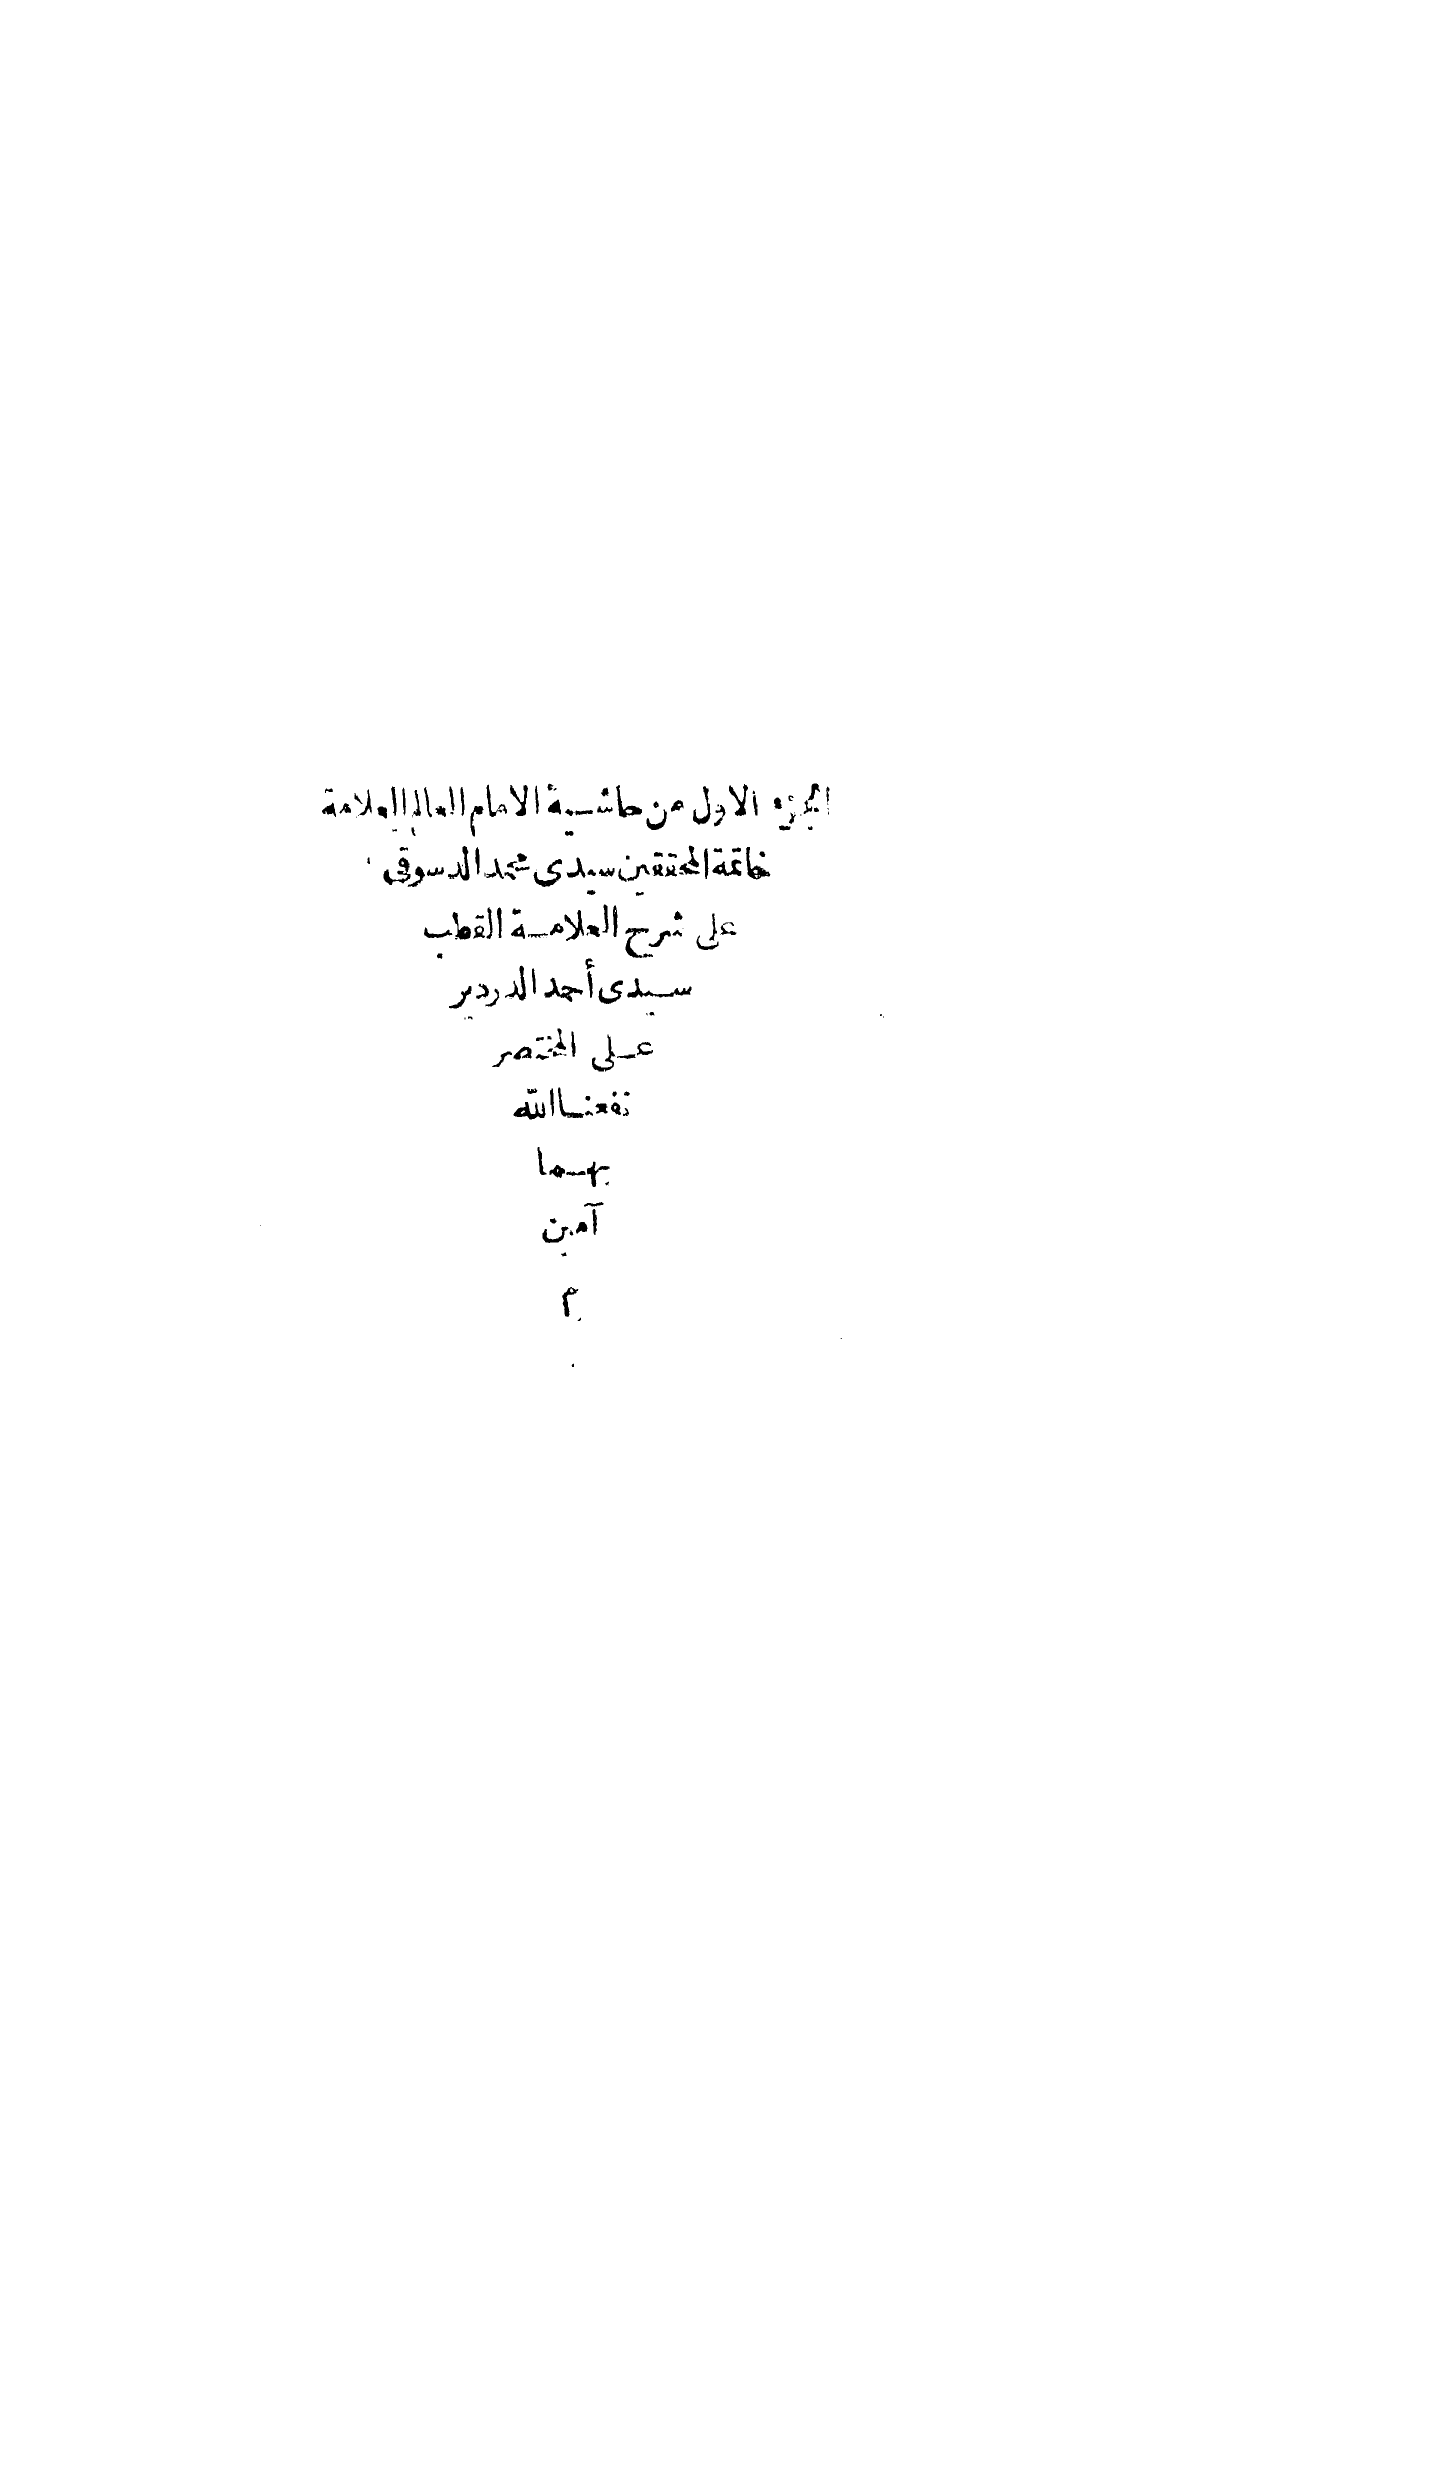 الجزء الاول من حاشية الامام العالم العلامة
خاتمة المحققين سيدى محمد الدسوقى
على شرح العلامة القطب
سيدى أحمد الدردير
على المختصر
نفعنا الله
بهما
آمين
م